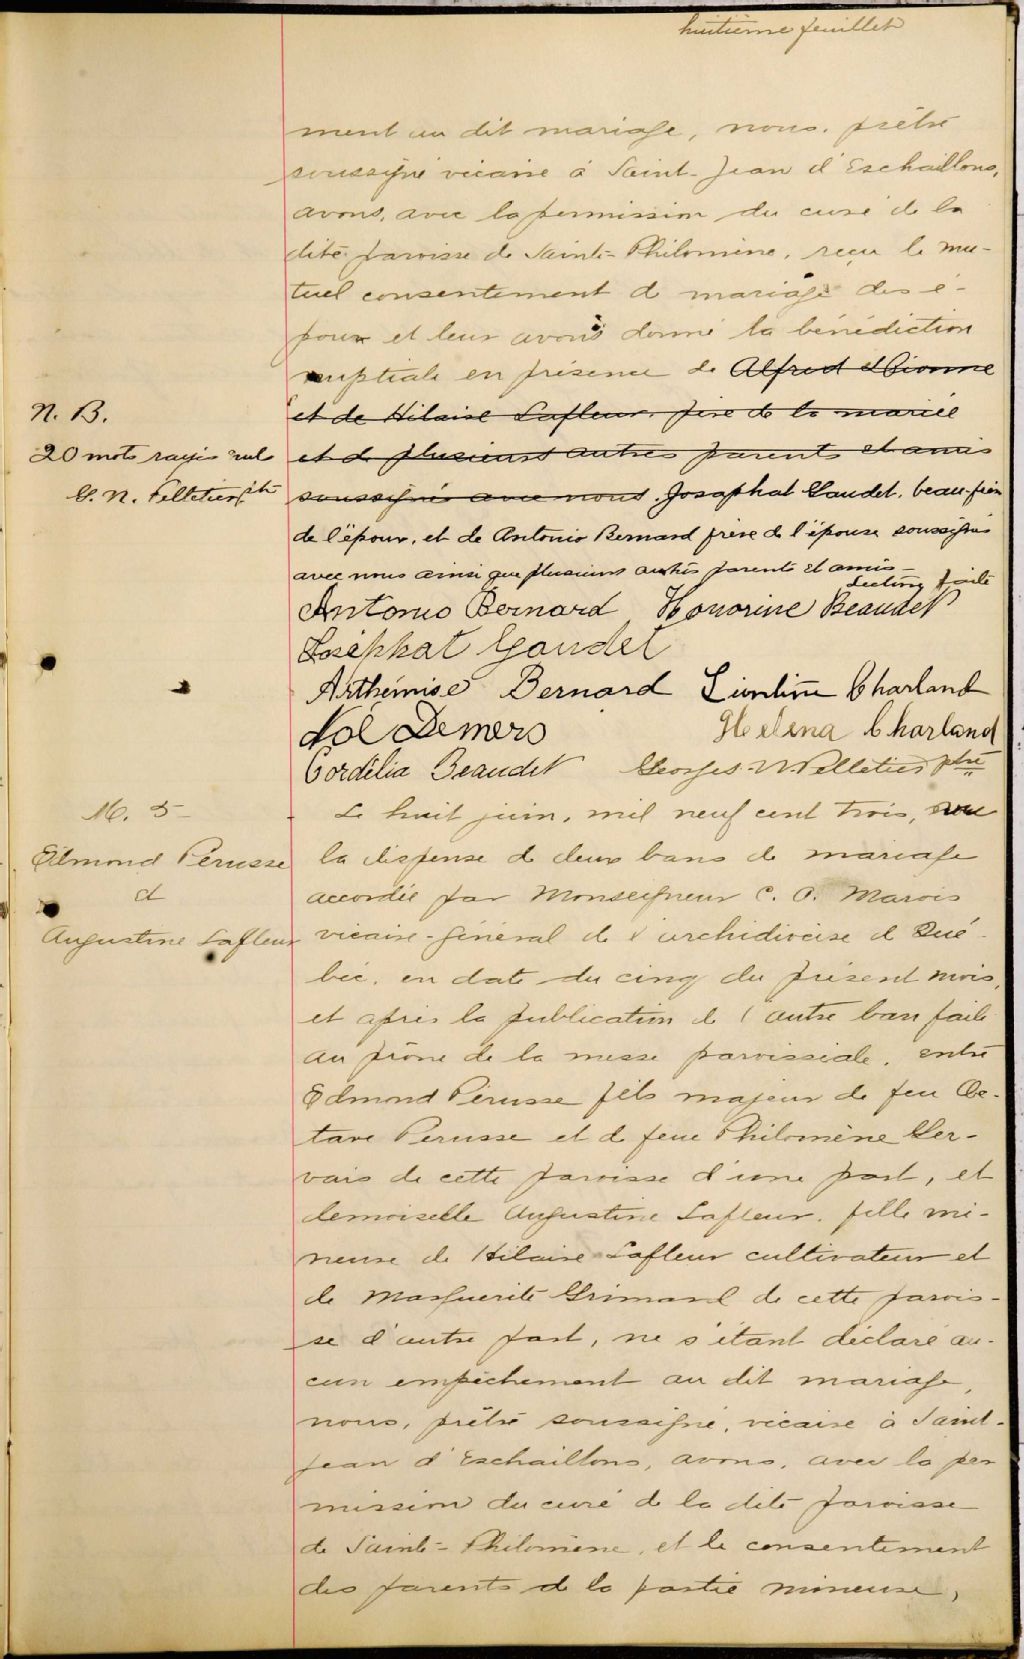 huitième feuillet
ment au dit mariage, nous, prêtre
soussigné vicaire à Saint-Jean d'Eschaillons,
avons, avec la permission du curé de la
dite paroisse de Sainte-Philomène, reçu le mu-
tuel consentement de mariage des é-
poux et leur avons donné la bénédiction
nuptiale en présence de Alfred
et de Hilaire Lafleur, père de la mariée
et de plusieurs autres parents et amis
soussignés avec nous. Josaphat Gaudet, beau-frère
de l'époux, et de Antonio Bernard frère de l'épouse soussignés
avec nous ainsi que plusieurs autres parents et amis -
Lecture faite
Antonio Bernard Honorine Beaudet
Joséphat Gaudet
Arthémise Bernard Charland
Noé Demers Helena Charland
Cordélia Beaudet Georges-N. Pelletier ptre
N. B.
20 mots rayés nuls
G. N. Pelletier ptr
M. 5
Edmond Perusse
et
Augustine Lafleur
Le huit juin, mil neuf cent trois, vu
la dispense de deux bans de mariage
accordée par Monseigneur C. A. Marois
vicaire-général de l'archidiocèse de Qué-
bec, en date du cinq du présent mois,
et après la publication de l'autre ban faite
au prône de la messe paroissiale, entre
Edmond Pérusse fils majeur de feu Oc-
tave Perusse et de feue Philomène Ger-
vais de cette paroisse d'une part, et
demoiselle Augustine Lafleur, fille mi-
neure de Hilaire Lafleur cultivateur et
de Marguerite Grimard de cette parois-
se d'autre part, ne s'étant déclaré au-
cun empêchement au dit mariage,
nous, prêtre soussigné, vicaire à Saint-
Jean d'Eschaillons, avons, avec la per
mission du curé de la dite paroisse
de Sainte-Philomène, et le consentement
des parents de la partie mineure,